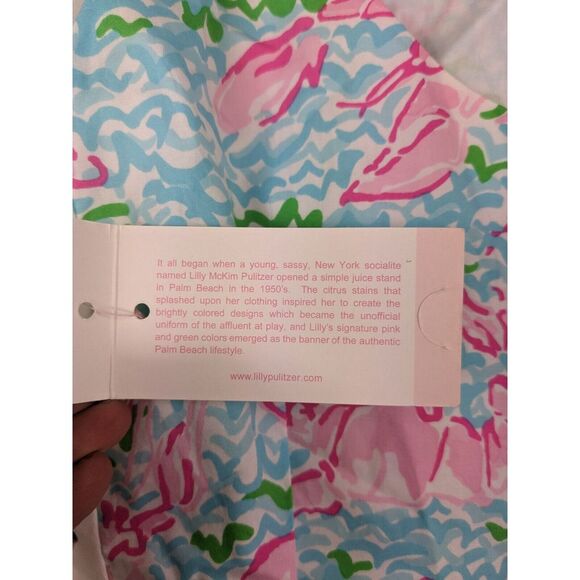 It all began when a young, sassy, New York socialite
named Lilly McKim Pulitzer opened a simple juice stand
in Palm Beach in the 1950's. The citrus stains that
splashed upon her clothing inspired her to create the
brightly colored designs which became the unofficial
uniform of the affluent at play, and Lilly's signature pink
and green colors emerged as the banner of the authentic
Palm Beach lifestyle.
www.lillypulitzer.com